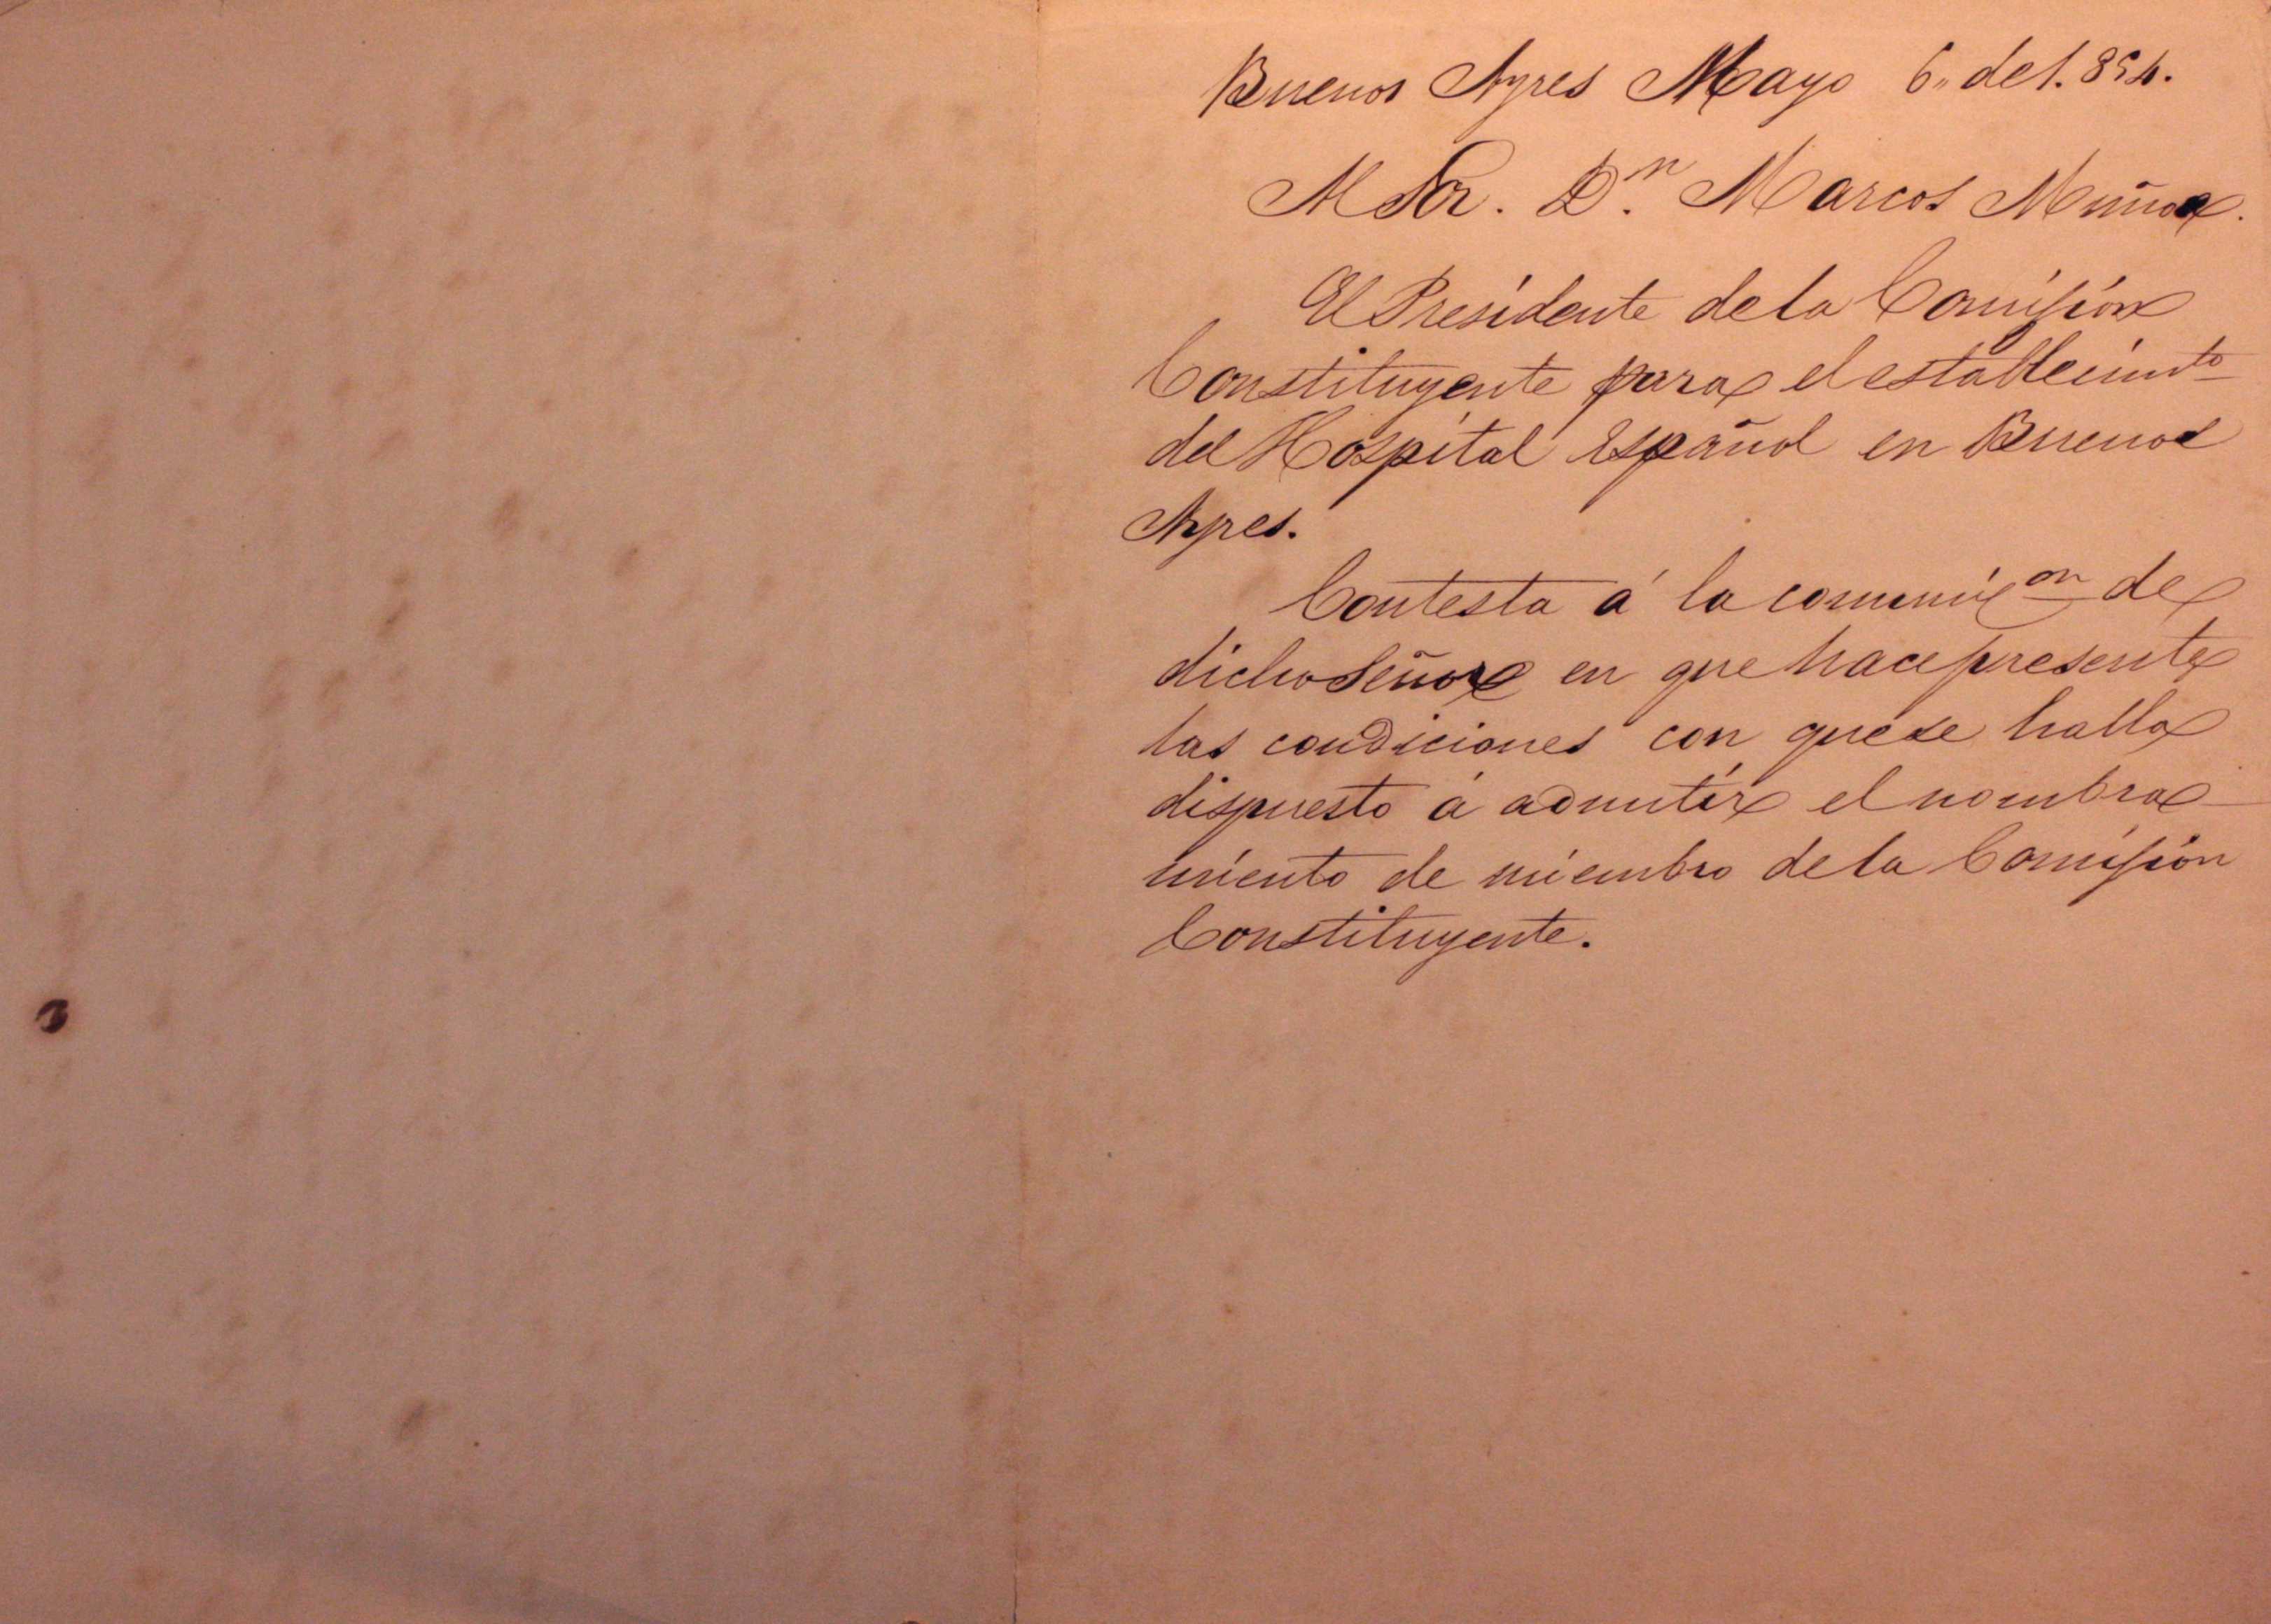 Buenos Ayres Mayo 6„ de 1.854.
Al Sor. D.n Marcos Muñoz.
El Presidente de la Comisión
Constituyente para el establecimto
del Hospital Español en Buenos
Ayres.
Contesta á la comunicon de
dicho Señor en que hace presente
las condiciones con que se halla
dispuesto á admitir el nombra
miento de miembro de la Comisión
Constituyente.